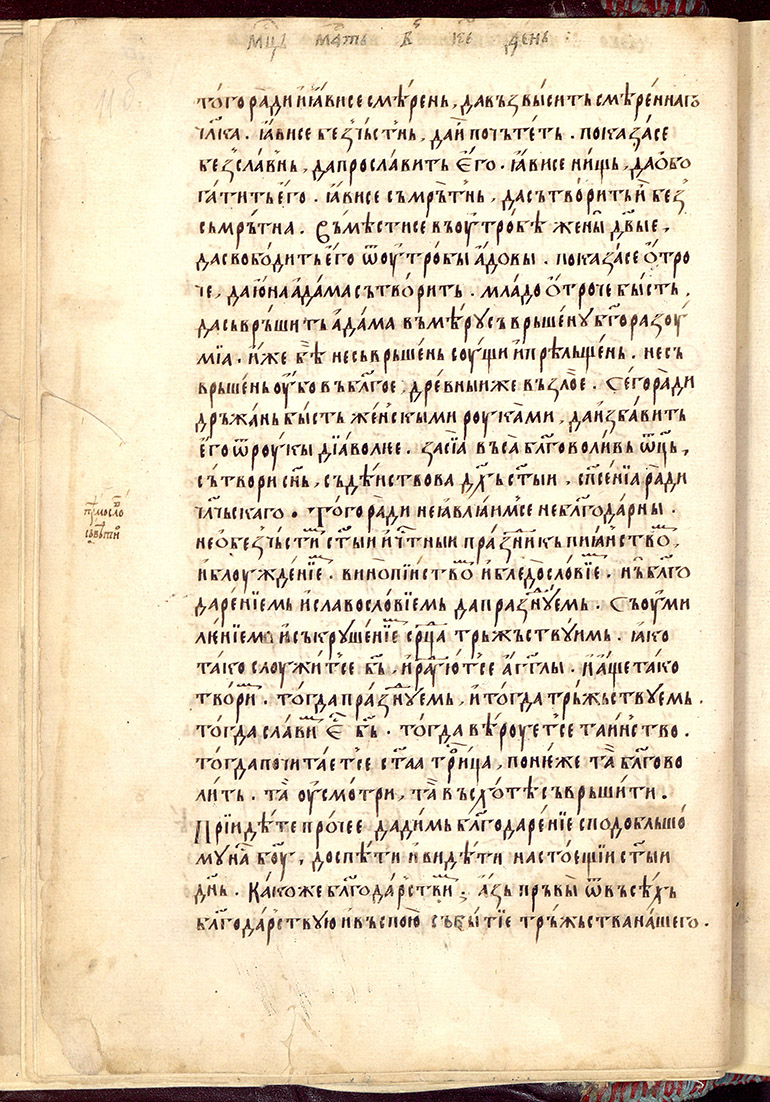 мⷭ҇ць мартъ в к҃е день
11 б.
того ради иꙗ҆ви се смѣ́рень, да възвысить смѣреннаго
чл҃ка. ꙗ҆ви се без̾чьстнь, да и почьтеть. показа́ се
без̾славнь, да прославить е҆го. ꙗ҆ви се нищь, да ѻ҆бо
гатить е҆го. ꙗ҆ви се съмрътнь, да сътворить и без̾
сьмрътна. съмѣсти се въ оутробѣ жены дв҃ые,
да свободить е҆го ѿ оутробы а҆довы. показа се ѻ҆тро
че, да ю҆на а҆дама сътворить. младо ѻ҆троче бысть,
да сьврьшить а҆дама въ мѣру съврьшену бл҃горазоу
мїа. иже бѣ несьврьшень соущи и прѣльщень. несъ
врьшень оубо въ бл҃гое, древныи же въ злое. сего ради
дръжань бысть женскыми роуками, да избавить
е҆го ѿ роукы дїаволие. за сїа въса бл҃говоливь ѿць,
сътвори сн҃ь, съдѣиствова дх҃ь ст҃ыи, сп҃сенїа ради
чл҃чьскаго. того ради не ꙗвлꙗимсе неблагодарны.
не ѻбез̾чьстим ст҃ыи и чьтныи праздникь пиꙗнством,
и блоужденїем. винопїиством и бледословїем. нь бл҃го
даренїемь и славословїемь да празднуемь. съ оуми
ленїемь и съкрушенїем срⷣца тръжьствуимь. ꙗко
тако слоужит се бь҃, и радуют се агг҃лы. и аще тако
творим. тогда празднуемь, и тогда тръжьствуемь.
тогда славим е҆ бь҃. тогда вѣроует се таинство.
тогда почитает се ст҃аа троица, понеже та бл҃гово
лить. та оусмотри, та въ схотѣ съврьшити.
прїидѣте прочее дадимь благодаренїе сподобльшо
му на бо҃у, доспѣти и видѣти настоещїи ст҃ыи
дн҃ь. како же бл҃годарствим; азь прьвы ѿ въсѣхъ
бл҃годарствую и въспою събытїе тръжьства нашего.